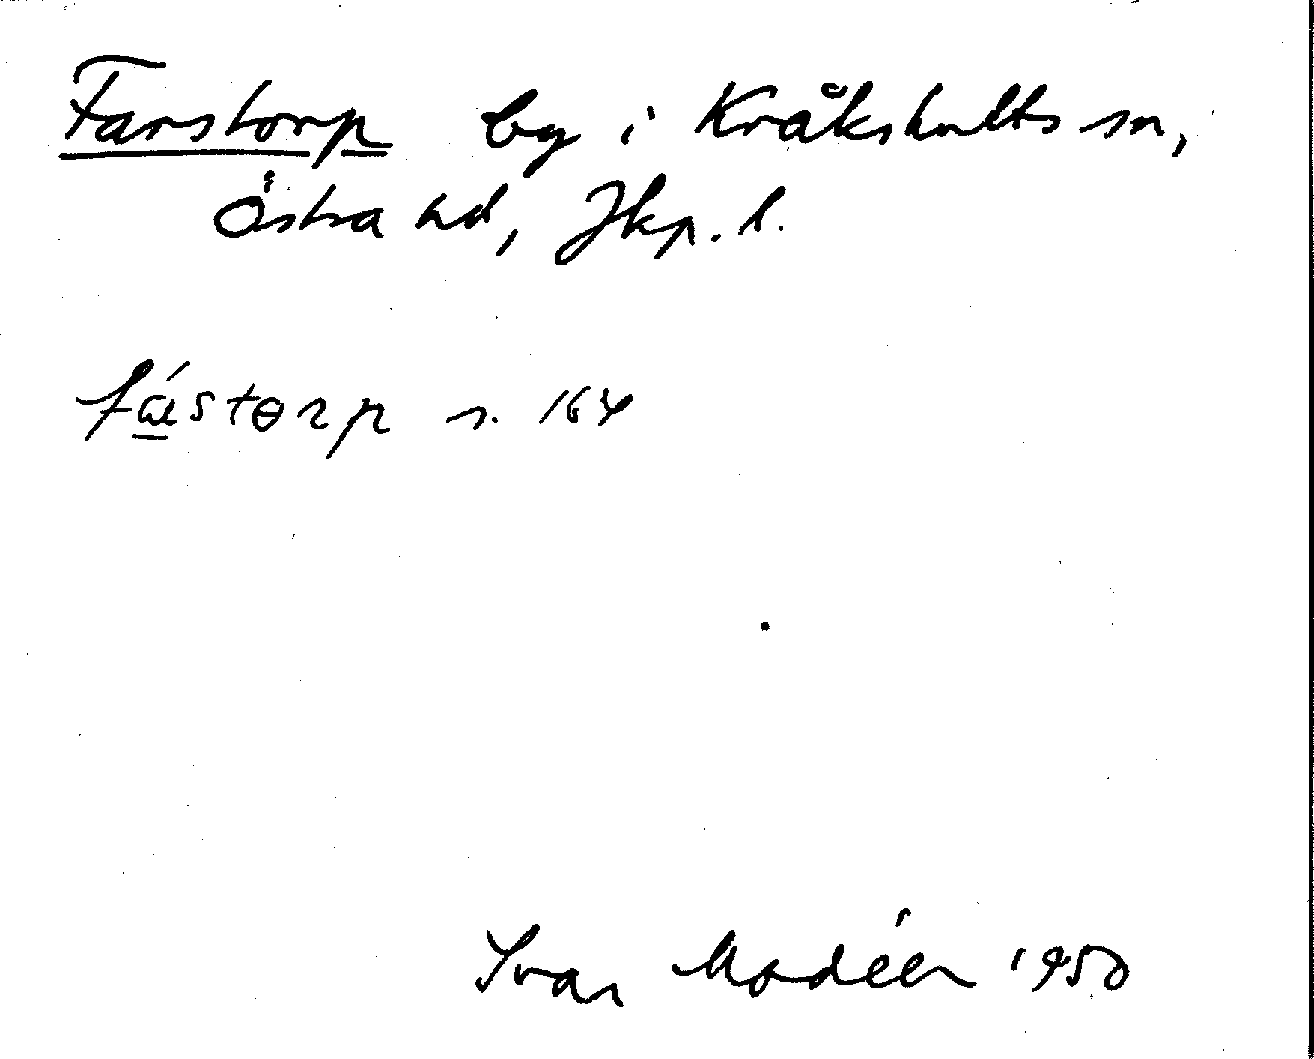 Farstorp by i Kråkshults sn,
Östra hd, Jkp. l.
fástɵrp s. 164
Ivar Modéer 1950